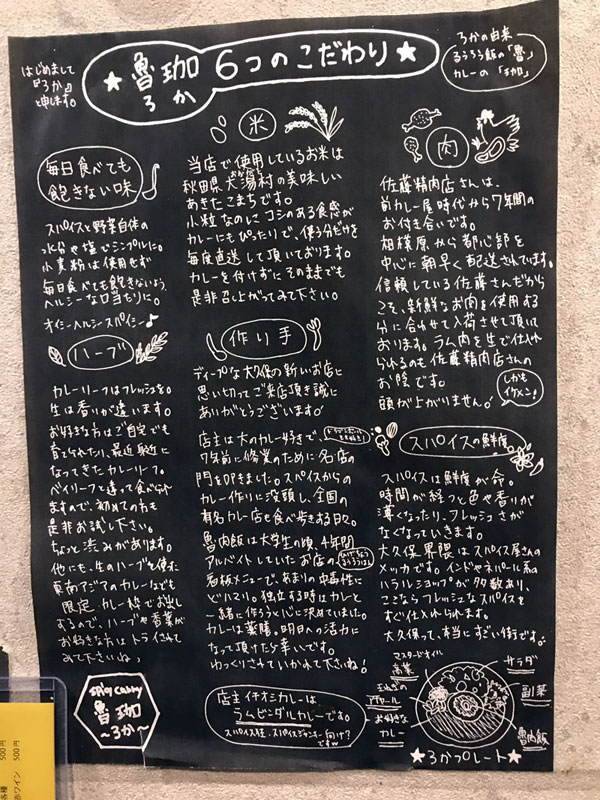 はじめまして
『ろか』
と申します。
★魯珈 6つのこだわり★
ろか
ろかの由来
るうろう飯の「魯」
カレーの「珈」
毎日食べても
飽きない味
スパイスと野菜自体の
水分や塩でシンプルに。
小麦粉は使用せず
毎日食べても飽きないよう、
ヘルシーな口当たりに。
オイシーヘルシースパイシー♪
米
当店で使用しているお米は
秋田県大潟村の美味しい
あきたこまちです。
小粒なのにコシのある食感が
カレーにもぴったりで、使う分だけを
毎度直送して頂いております。
カレーを付けずにそのままでも
是非召し上がってみて下さい。
肉
佐藤精肉店さんは、
前カレー屋時代から7年間の
お付き合いです。
相模原から都心部を
中心に朝早く配送されています。
信頼している佐藤さんだから
こそ、新鮮なお肉を使用する
分に合わせて入荷させて頂いて
おります。ラム肉を生で仕入れ
られるのも佐藤精肉店さんの
お陰です。
頭が上がりません!
しかも
イケメン!
ハーブ
カレーリーフはフレッシュを。
生は香りが違います。
お好きな方はご自宅でも
育てられたり、最近身近に
なってきたカレーリーフ。
ベイリーフと違って食べられ
ますので、初めての方も
是非お試し下さい。
ちょっと渋みがあります。
他にも、生のハーブを使った
東南アジアのカレーなども
限定カレー枠でお出し
するので、ハーブや香菜が
お好きな方はトライされて
みて下さいね♪
作り手
ディープな大久保の新しいお店に
思い切ってご来店頂き誠に
ありがとうございます!
店主は大のカレー好きで、
7年前に修業のために名店の
門を叩きました。スパイスからの
カレー作りに没頭し、全国の
有名カレー店を食べ歩きする日々。
魯肉飯は大学生の頃、4年間
アルバイトしていたお店の
看板メニューで、あまりの中毒性に
どハマり。独立する時はカレーと
一緒に作ろうと心に決めていました。
カレーは薬膳。明日への活力に
なって頂けたら幸いです。
ゆっくりさせていかれて下さいね!
スパイスの鮮度
スパイスは鮮度が命。
時間が経つと色や香りが
薄くなったり、フレッシュさが
なくなっていきます。
大久保界隈はスパイス屋さんの
メッカです。インドやネパール系の
ハラルショップが多数あり、
ここならフレッシュなスパイスを
すぐ仕入れられます。
大久保って、本当にすごい街です。
spicy curry
魯珈
～ろか～
店主イチオシカレーは
ラムビンダルカレーです。
スパイス狂・スパイスジャンキー向け?
ですw
マスタードオイル
玉ねぎの
アチャール
お好きな
カレー
サラダ
副菜
魯肉飯
★ろかプレート★
500円
赤ワイン 500円